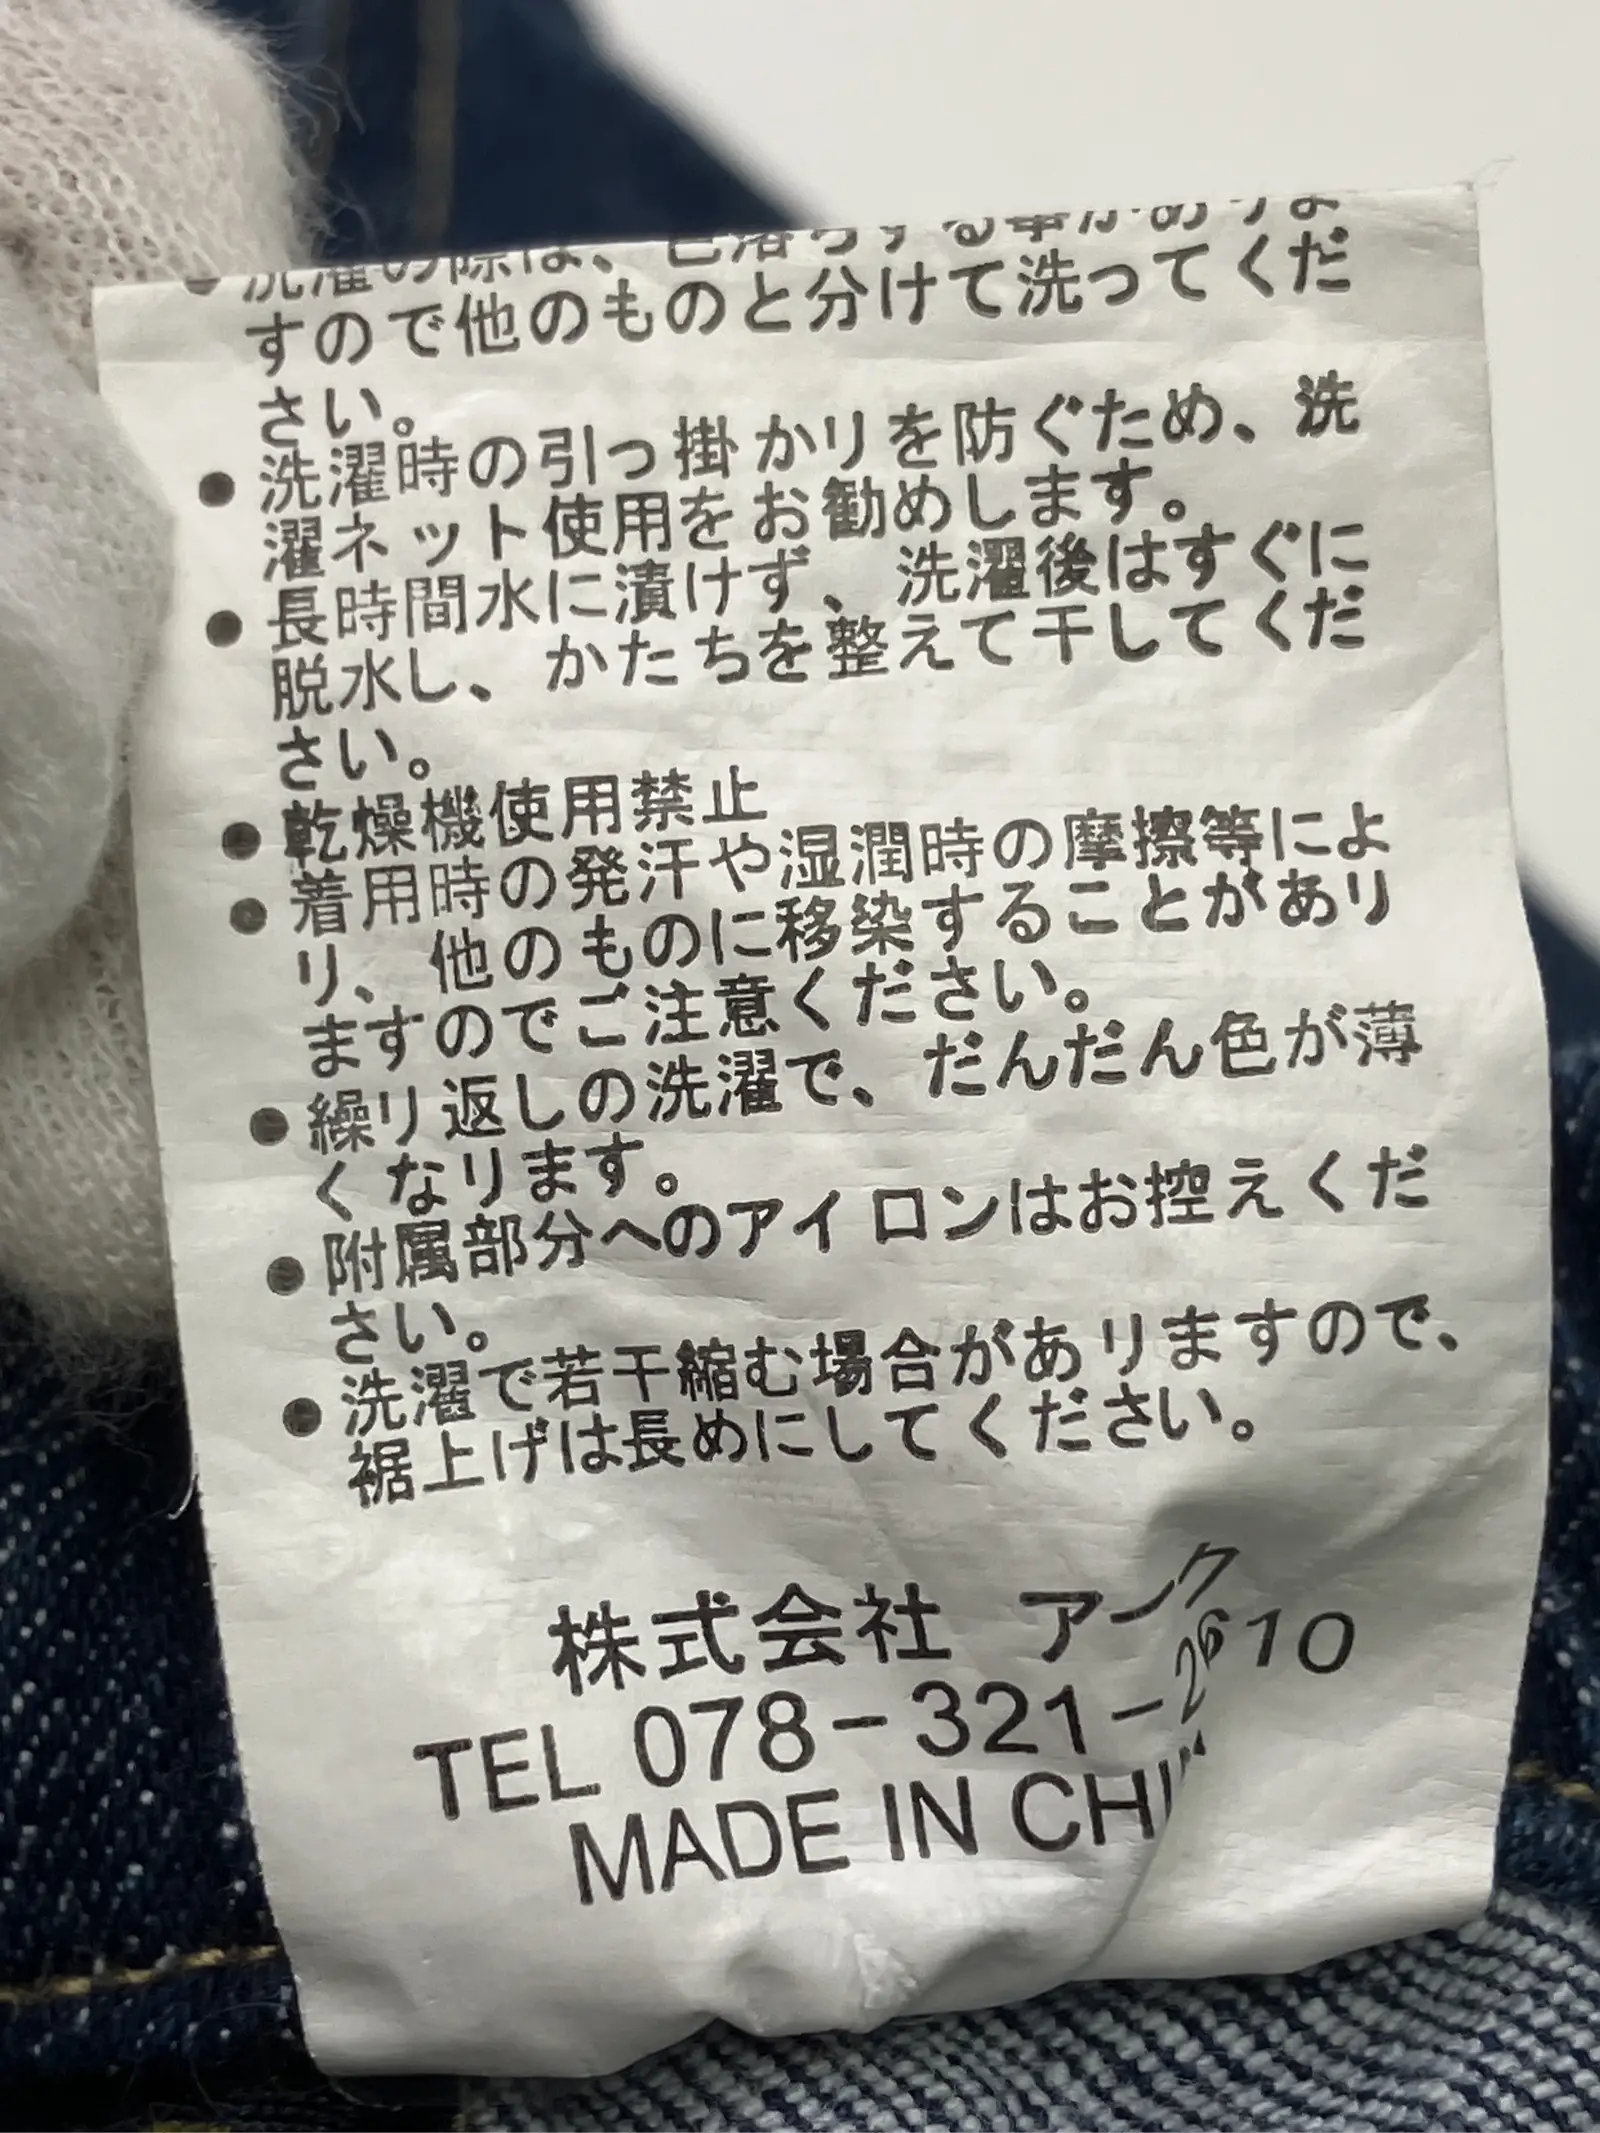 ● 洗濯の際は、色落ちする事がありま
すので他のものと分けて洗ってくだ
さい。
● 洗濯時の引っ掛かりを防ぐため、洗
濯ネット使用をお勧めします。
● 長時間水に漬けず、洗濯後はすぐに
脱水し、かたちを整えて干してくだ
さい。
● 乾燥機使用禁止
● 着用時の発汗や湿潤時の摩擦等によ
り、他のものに移染することがあり
ますのでご注意ください。
● 繰り返しの洗濯で、だんだん色が薄
くなります。
● 附属部分へのアイロンはお控えくだ
さい。
● 洗濯で若干縮む場合がありますので、
裾上げは長めにしてください。
株式会社 アーク
TEL 078-321-2610
MADE IN